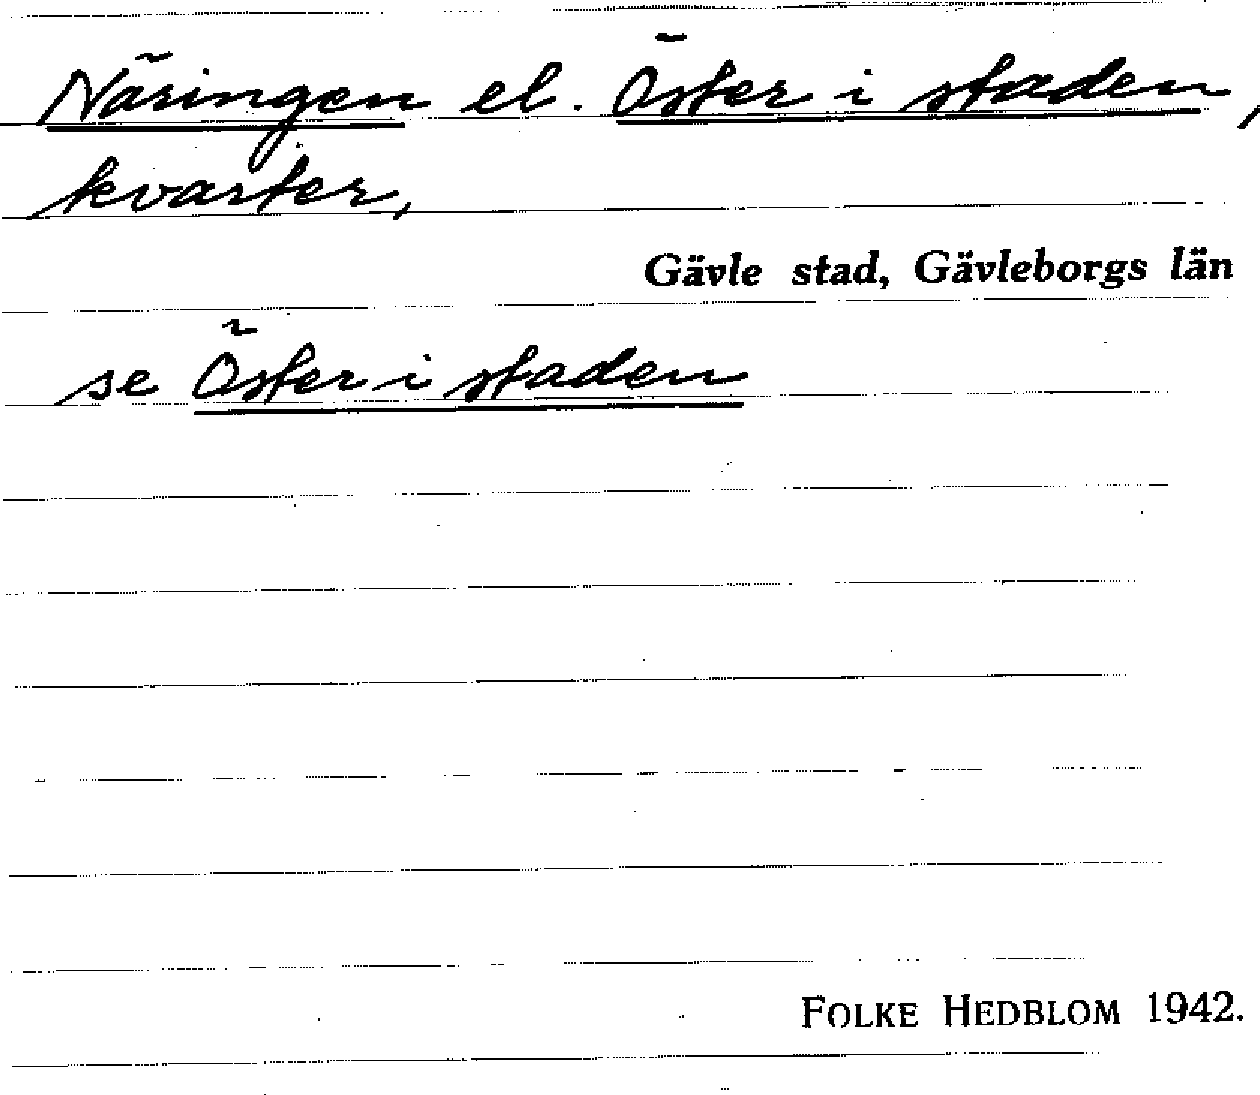 Näringen el. Öster i staden,
kvarter,
Gävle stad, Gävleborgs län
se Öster i staden
FOLKE HEDBLOM 1942.